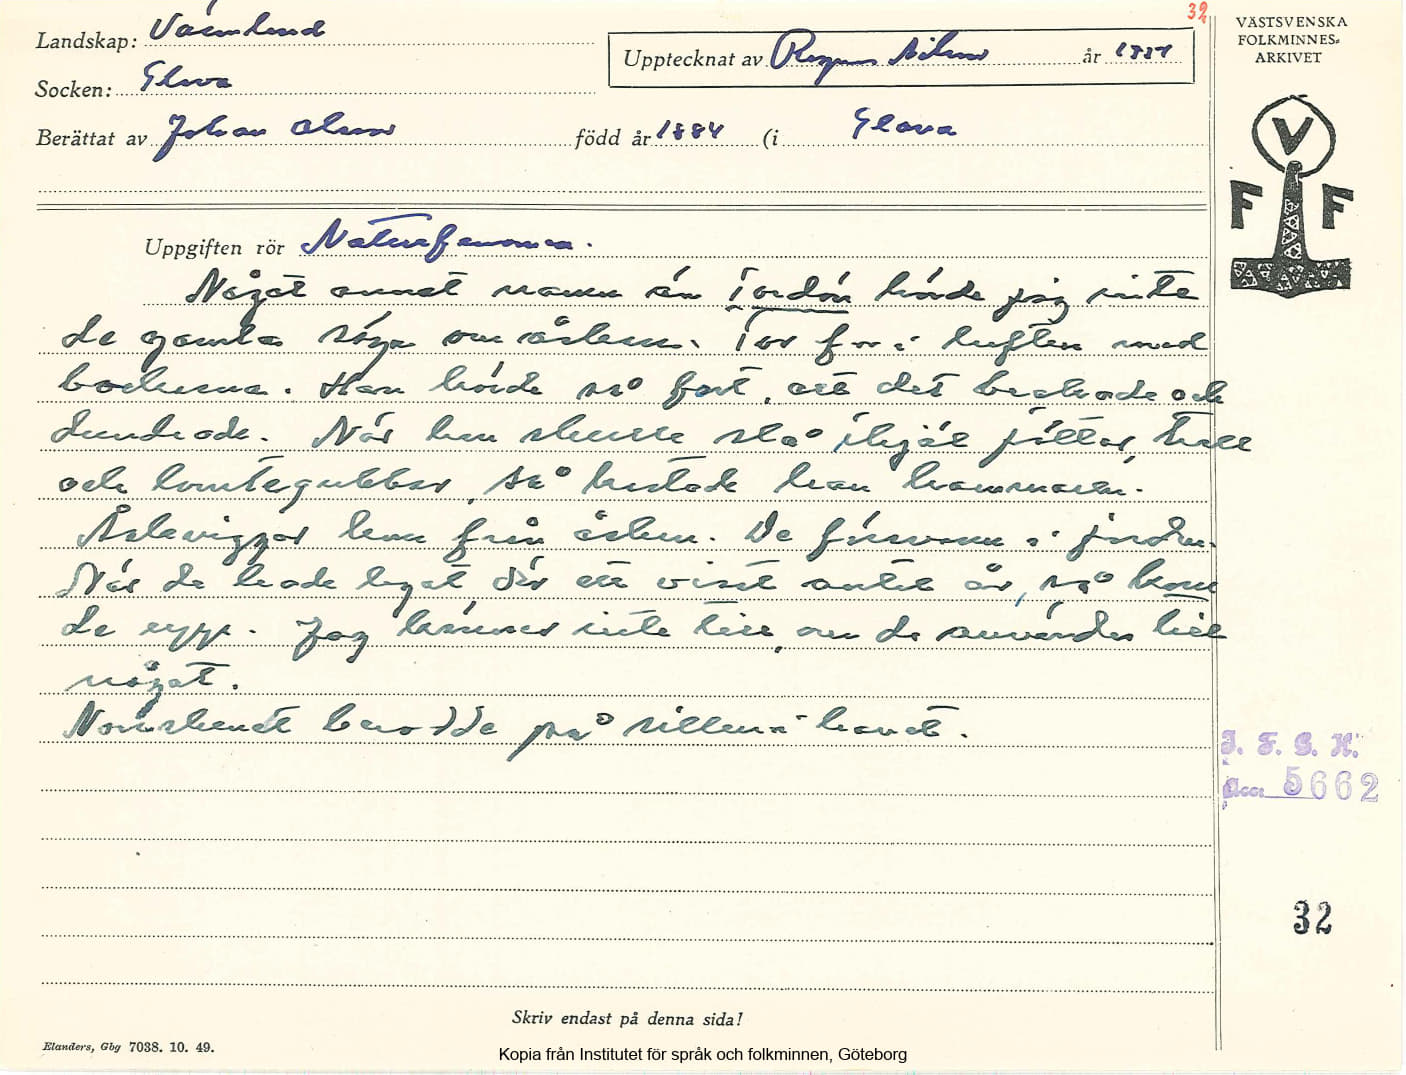 32
Landskap: Värmland
Upptecknat av Ragnar Nilsson år
Socken: Glava
Berättat av Johan Olsson född år 1884 (i Glava
VÄSTSVENSKA
FOLKMINNES-
ARKIVET
V
F F
Uppgiften rör Naturfenomen.
Något annat namn än Tordön hörde jag inte
de gamla säga om åskan. Tor for i luften med
bockarna. Han körde så fort, att det brakade och
dundrade. När han skulle slå ihjäl jättar, troll
och tomtegubbar, så kastade han hammaren.
Åskeviggar kom från åsken. De försvann i jorden.
När de hade legat där ett visst antal år, så kom
de upp. Jag känner inte till, om de användes till
något.
Norrskenet berodde på sillen i havet.
I. F. G. H.
Acc. 5662
32
Skriv endast på denna sida!
Elanders, Gbg 7038. 10. 49.
Kopia från Institutet för språk och folkminnen, Göteborg